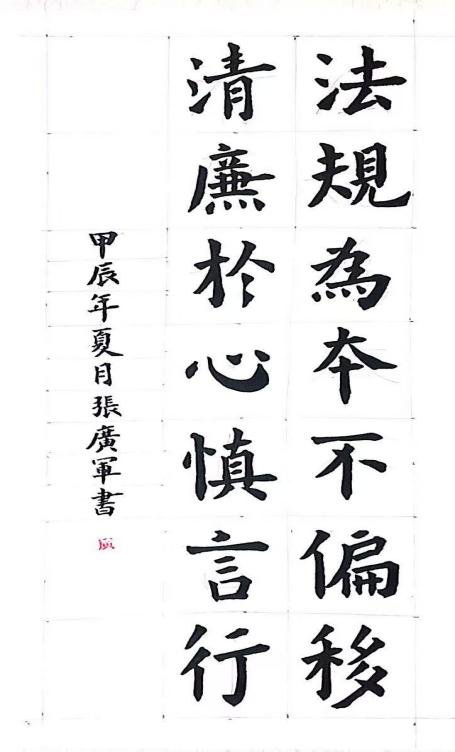 法規為本不偏移
清廉於心慎言行
甲辰年夏月張廣軍書